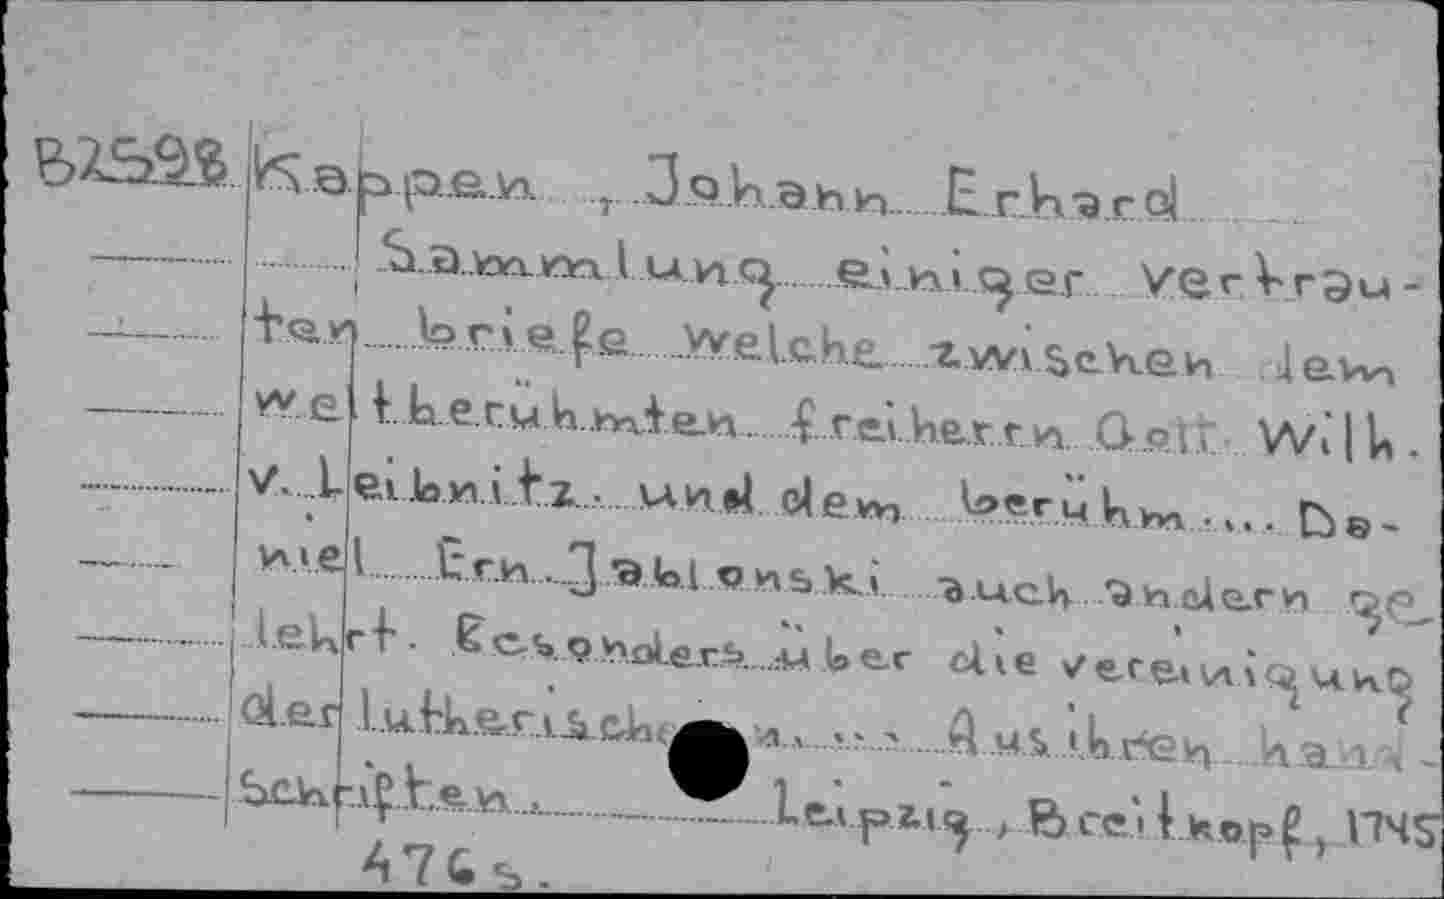 B2598 Kappen, Johann Erhard
Sammlung einiger vertrau-
ten briefe welche zwischen dem
weltberühmten freiherrn Gott Wilh.
v. Leibnitz. und dem berühm.... Da-
niel Ern. Jablonski auch andern ge
lehrt. Besonders über die vereinigung
der lutherisch ... Aus ihren hand-
schriften. Leipzig, Breitkopf, 1745
476 s.